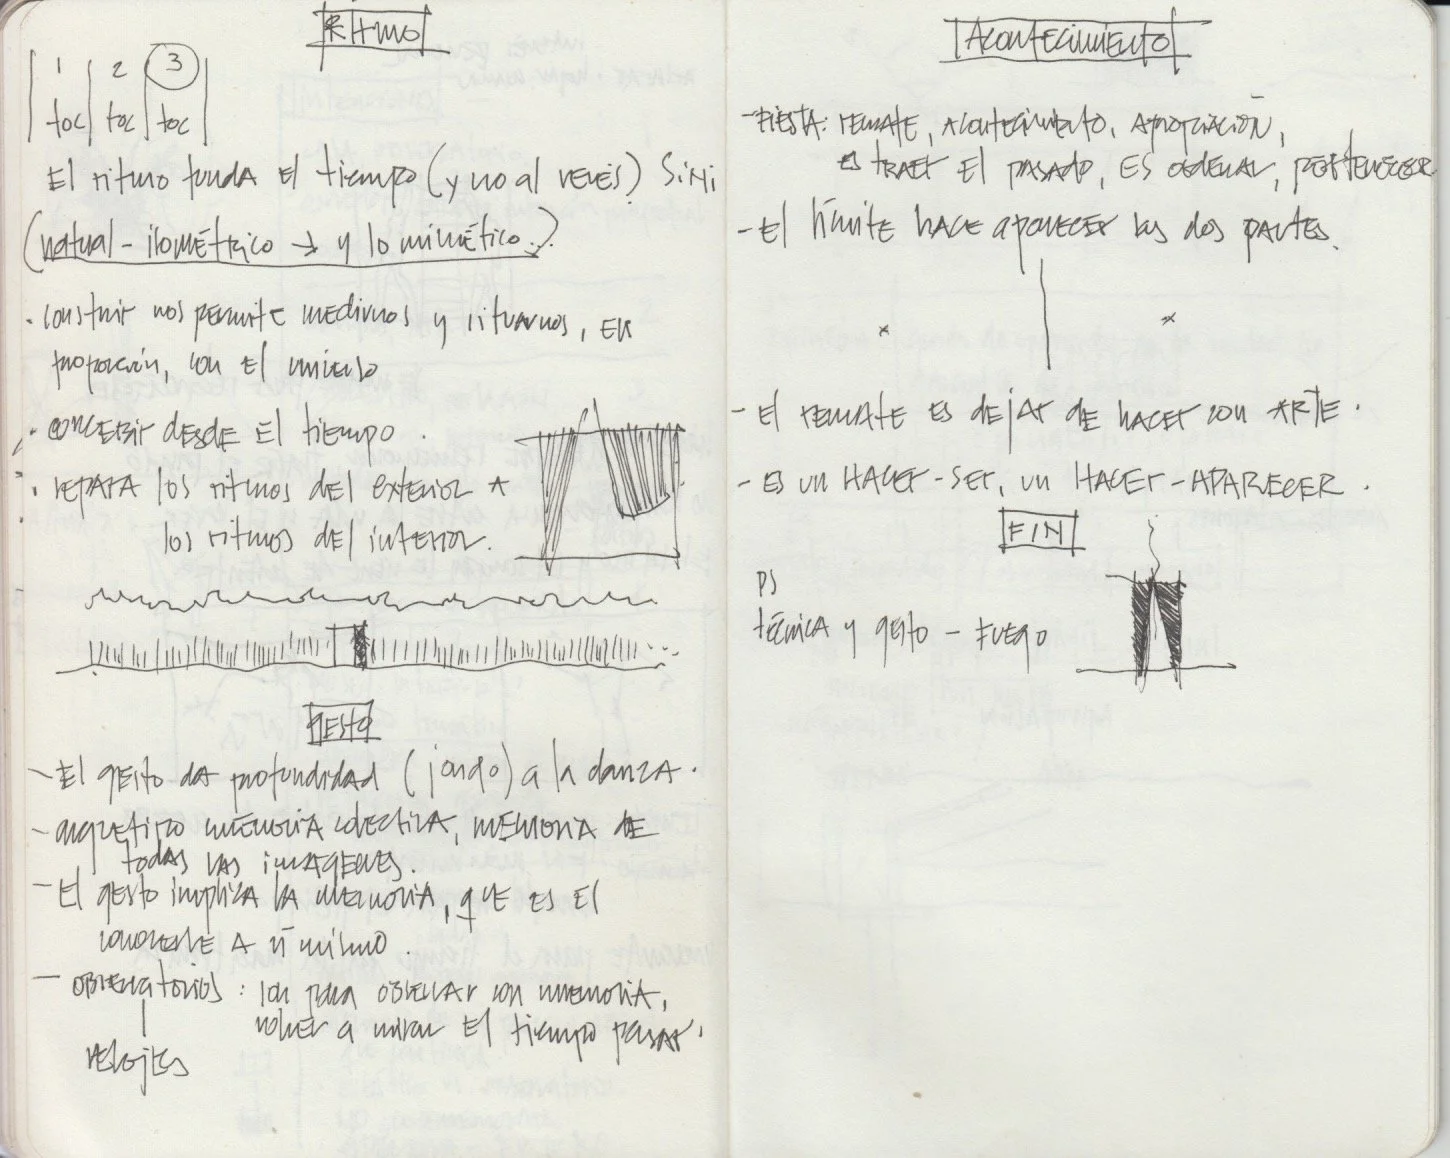 RITMO
1 2 3
toc toc toc
El ritmo funda el tiempo (y no al revés) SiNi
(natural - isométrico → y lo mimético.)
· construir nos permite medirnos y situarnos, en
proporción, con el universo
· concebir desde el tiempo.
· repara los ritmos del exterior a
los ritmos del interior.
GESTO
- El gesto da profundidad (jondo) a la danza.
- arquetipo memoria colectiva, memoria de
todas las imágenes.
- El gesto implica la memoria, que es el
conocerse a sí mismo.
- observatorios: son para observar con memoria,
volver a mirar el tiempo pasar.
relojes
ACONTECIMIENTO
- FIESTA: remate, acontecimiento, apropiación,
es traer el pasado, es ordenar, pertenecer
- El límite hace aparecer las dos partes.
- el remate es dejar de hacer con ARTE.
- es un HACER-SER, un HACER-APARECER.
FIN
PS
técnica y gesto - fuego